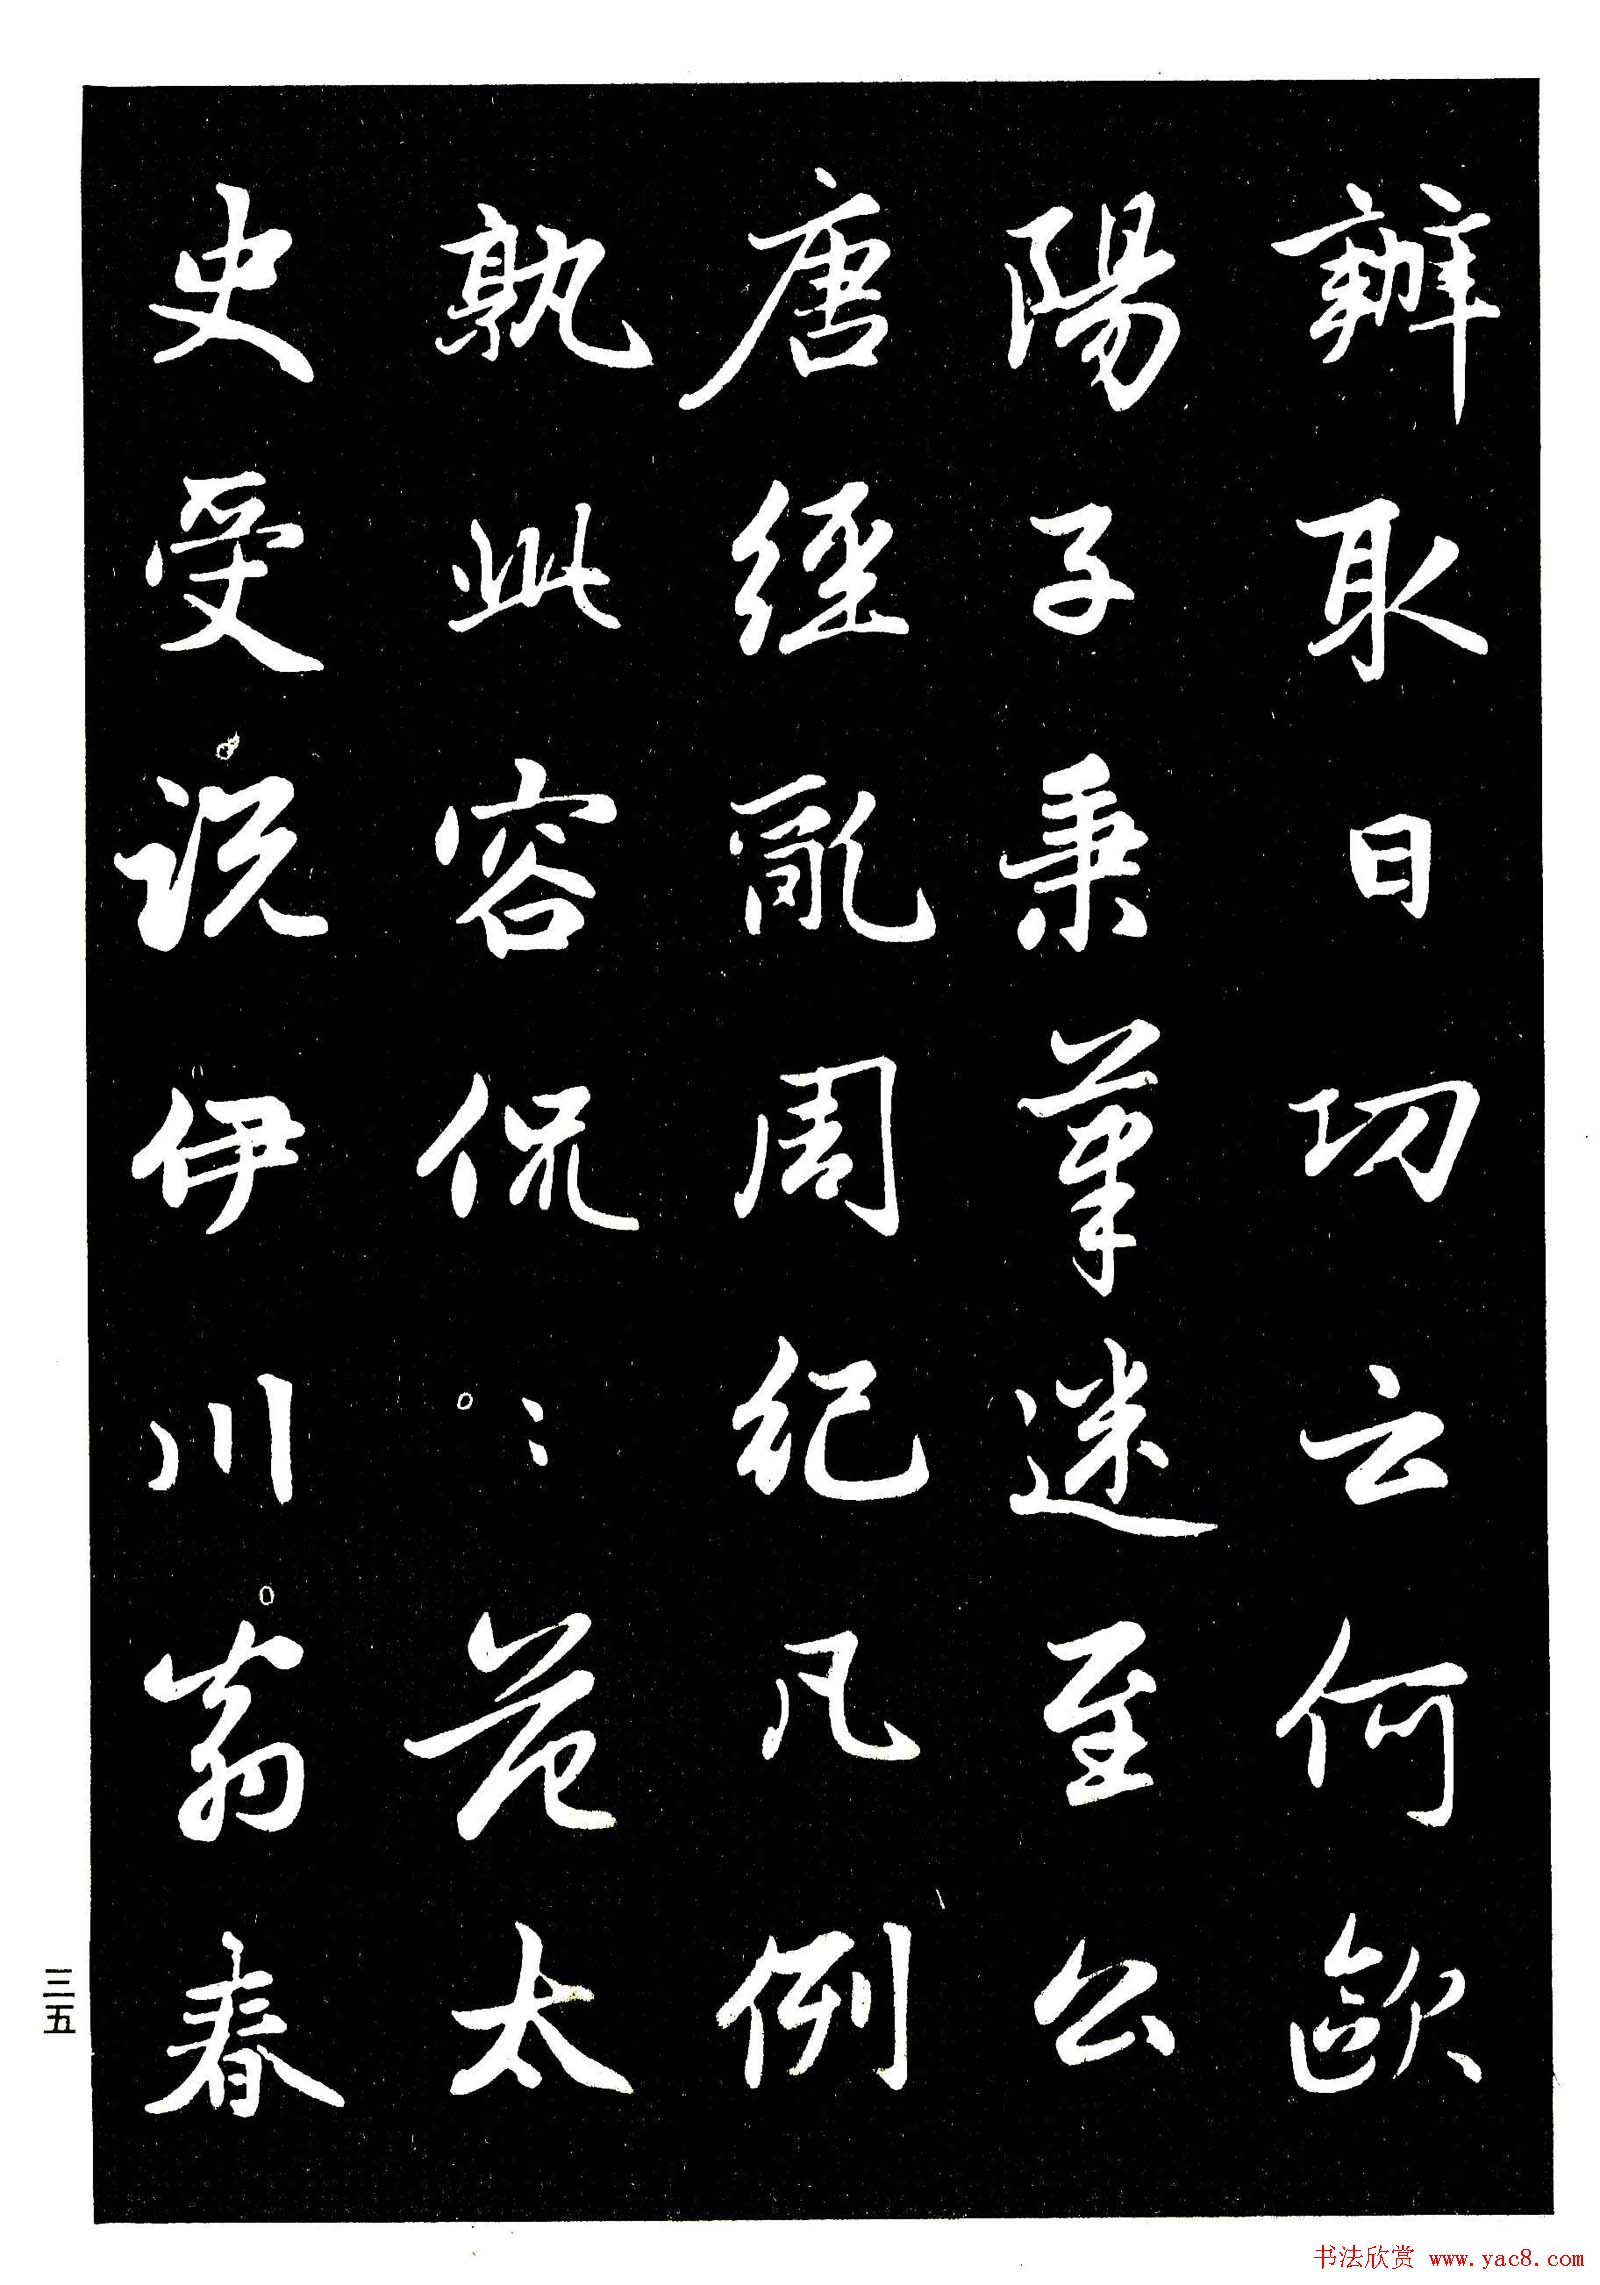 辦取日功云何歐
陽子秉筆迷至公
唐經亂周紀凡例
孰此容侃〻范太
史受説伊川翁春
三五
书法欣赏 www.yac8.com